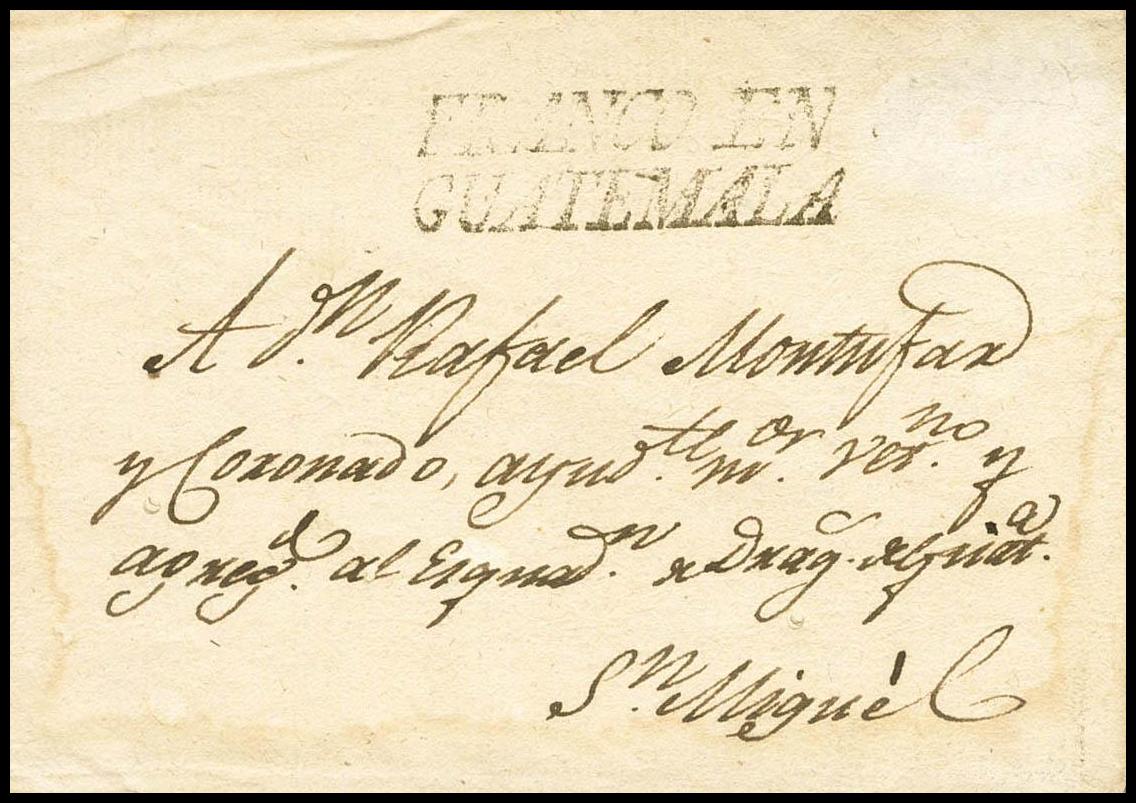 FRANCO EN
GUATEMALA
A d.n Rafael Montufar
y Coronado, ayud.te m.or vet.no y
agreg.do al Esquad.n de Drag.s de
S.n Miguèl